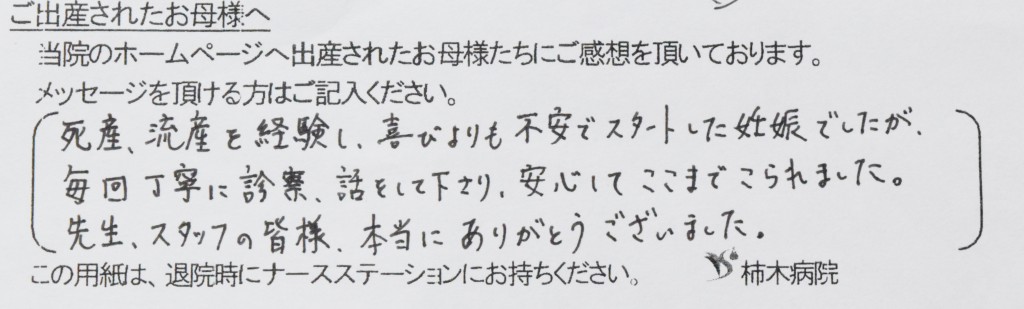 ご出産されたお母様へ
当院のホームページへ出産されたお母様たちにご感想を頂いております。
メッセージを頂ける方はご記入ください。
死産、流産を経験し、喜びよりも不安でスタートした妊娠でしたが、
毎回丁寧に診察、話をして下さり、安心してここまでこられました。
先生、スタッフの皆様、本当にありがとうございました。
この用紙は、退院時にナースステーションにお持ちください。 柿木病院